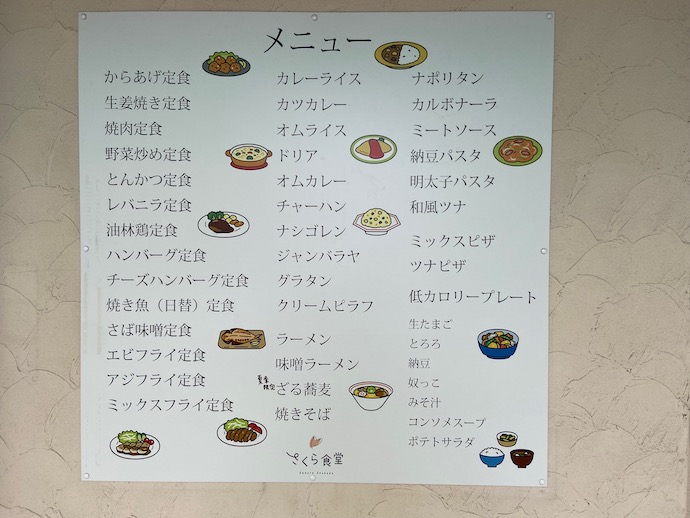 メニュー
からあげ定食
生姜焼き定食
焼肉定食
野菜炒め定食
とんかつ定食
レバニラ定食
油林鶏定食
ハンバーグ定食
チーズハンバーグ定食
焼き魚（日替）定食
さば味噌定食
エビフライ定食
アジフライ定食
ミックスフライ定食
カレーライス
カツカレー
オムライス
ドリア
オムカレー
チャーハン
ナシゴレン
ジャンバラヤ
グラタン
クリームピラフ
ラーメン
味噌ラーメン
夏季限定 ざる蕎麦
焼きそば
さくら食堂
ナポリタン
カルボナーラ
ミートソース
納豆パスタ
明太子パスタ
和風ツナ
ミックスピザ
ツナピザ
低カロリープレート
生たまご
とろろ
納豆
奴っこ
みそ汁
コンソメスープ
ポテトサラダ